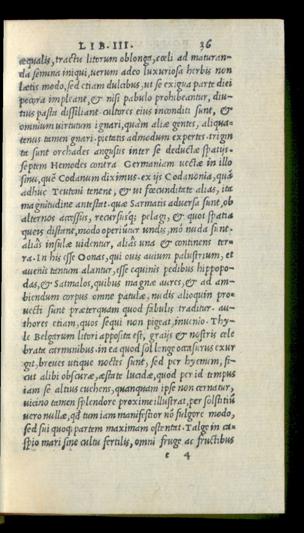 LIB. III. 36
æqualis, tractu literum oblonga, cœli ad maturan-
da semina iniqui, uerum adeo luxuriosa herbis non
lætis modo, sed etiam dulcibus, ut se exigua parte diei
pecora impleant, & nisi pabulo prohibeantur, diu-
tius pasta dissiliant. cultores eius inconditi sunt, &
omnium uirtutum ignari, quàm aliæ gentes, aliqua-
tenus tamen gnari. pietatis admodum expertes. trigin
ta sunt orchades angustis inter se deductæ spatijs.
septem Hemodes contra Germaniam uectæ in illo
sinu, quē Codanum diximus. ex ijs Codanonia, quā
adhuc Teutoni tenent, & ut fœcunditate alias, ita
magnitudine antestat. quæ Sarmatis aduersa sunt, ob
alternos accessus, recursusq; pelagi, & quòt spatia
queis distant, modo operiuntur undis, mò nuda sunt.
aliàs insulæ uidentur, aliàs una & continens ter-
ra. In his esse Oonas, qui ouis auium palustrium, et
auenis tantum alantur, esse equinis pedibus hippopo-
das, & Satmalos, quibus magnæ aures, & ad am-
biendum corpus omne patulæ, nudis alioquin pro
uecti sunt præterquam quod fabulis traditur. au-
thores etiam, quos sequi non pigeat, inuenio. Thy-
le Belgarum litori apposita est, graijs & nostris cele
brata carminibus. in ea quod sol longe occasurus exur
git, breues utique noctes sunt, sed per hyemem, si-
cut alibi obscuræ, æstate lucidæ, quod per id tempus
iam se altius euehens, quanquam ipse non cernatur,
uicino tamen splendore proxime illustrat, per solstitiū
uero nullæ, qd' tum iam manifestior nō fulgore modo,
sed sui quoq; partem maximam ostentat. Talge in ca-
spio mari sine cultu fertilis, omni fruge ac fructibus
e 4